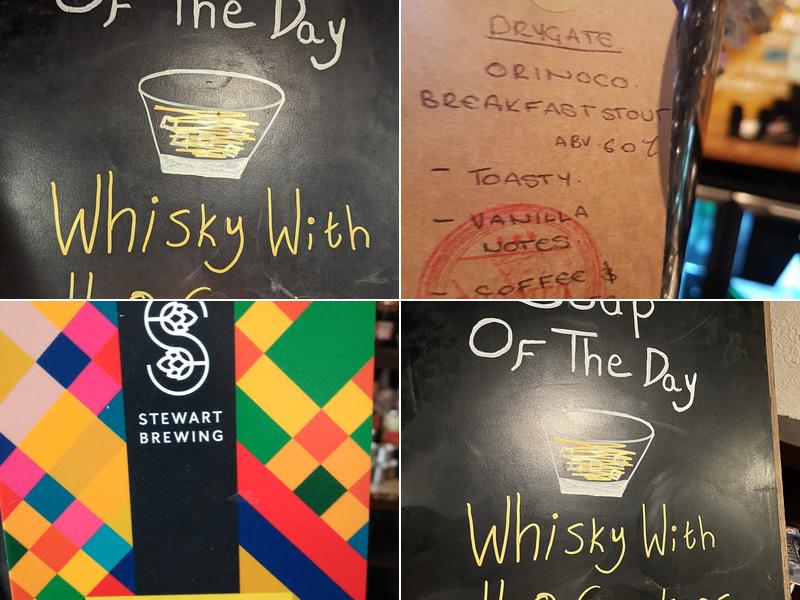 Of The Day
Whisky With
DRYGATE.
ORINOCO.
BREAKFAST STOUT
ABV. 6.0%
- TOASTY.
- VANILLA
NOTES
- COFFEE &
STEWART
BREWING
Soup
Of The Day
Whisky With